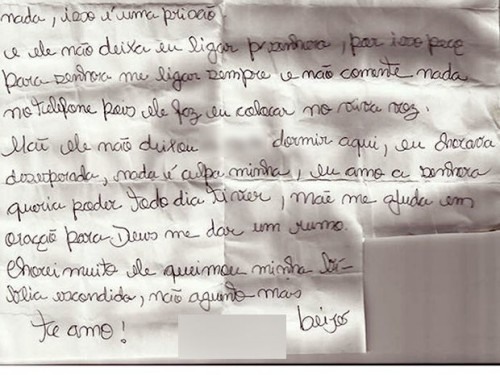 nada, isso é uma prisão.
e ele não deixa eu ligar prasenhora, por isso peço
para senhora me ligar sempre e não comente nada
no telefone pois ele faz eu colocar no viva voz.
Mãe ele não deixou dormir aqui, eu chorava
desesperada, nada é culpa minha, eu amo a senhora
queria poder todo dia ti ver, mãe me ajuda em
oração para Deus me dar um rumo.
Chorei muito ele queimou minha bí-
blia escondida, não aguento mais
te amo! beijos